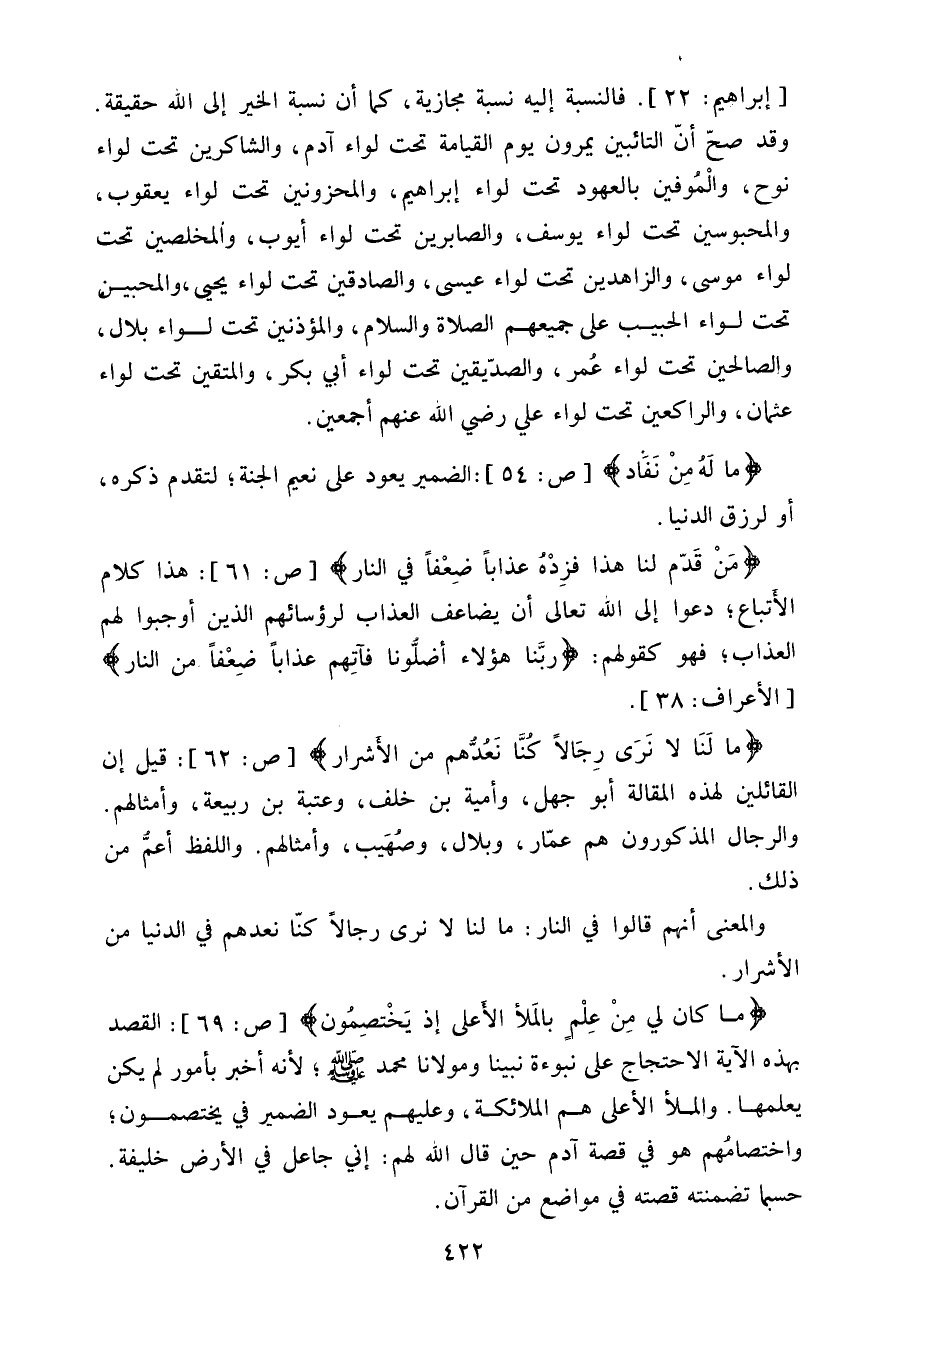 [ إبراهيم: ٢٢ ]. فالنسبة إليه نسبة مجازية، كما أن نسبة الخير إلى الله حقيقة.
وقد صحّ أنّ التائبين يمرون يوم القيامة تحت لواء آدم، والشاكرين تحت لواء
نوح، والْمُوفين بالعهود تحت لواء إبراهيم، والمحزونين تحت لواء يعقوب،
والمحبوسين تحت لواء يوسف، والصابرين تحت لواء أيوب، والمخلصين تحت
لواء موسى، والزاهدين تحت لواء عيسى، والصادقين تحت لواء يحيى، والمحبين
تحت لواء الحبيب على جميعهم الصلاة والسلام، والمؤذنين تحت لواء بلال،
والصالحين تحت لواء عُمر، والصدّيقين تحت لواء أبي بكر، والمتقين تحت لواء
عثمان، والراكعين تحت لواء علي رضي الله عنهم أجمعين.
﴿ما لَهُ مِنْ نَفَاد﴾ [ ص: ٥٤ ]: الضمير يعود على نعيم الجنة؛ لتقدم ذكره،
أو لرزق الدنيا.
﴿مَنْ قَدّم لنا هذا فزِدْهُ عذاباً ضِعْفاً في النار﴾ [ ص: ٦١ ]: هذا كلام
الأتباع؛ دعوا إلى الله تعالى أن يضاعف العذاب لرؤسائهم الذين أوجبوا لهم
العذاب؛ فهو كقولهم: ﴿ربَّنا هؤلاء أضلُّونا فآتِهم عذاباً ضِعْفاً من النار﴾
[ الأعراف: ٣٨ ].
﴿ما لَنَا لا نَرَى رِجَالاً كُنَّا نَعُدُّهم من الأَشرار﴾ [ ص: ٦٢ ]: قيل إن
القائلين لهذه المقالة أبو جهل، وأمية بن خلف، وعتبة بن ربيعة، وأمثالهم.
والرجال المذكورون هم عمّار، وبلال، وصُهَيب، وأمثالهم. واللفظ أعمُّ من
ذلك.
والمعنى أنهم قالوا في النار: ما لنا لا نرى رجالاً كنّا نعدهم في الدنيا من
الأشرار.
﴿ما كان لي مِنْ عِلْمٍ بالمَلأ الأَعلى إذ يَخْتصِمُون﴾ [ ص: ٦٩ ]: القصد
بهذه الآية الاحتجاج على نبوءة نبينا ومولانا محمد ﷺ؛ لأنه أخبر بأمور لم يكن
يعلمها. والملأ الأعلى هم الملائكة، وعليهم يعود الضمير في يختصمون؛
واختصامُهم هو في قصة آدم حين قال الله لهم: إني جاعل في الأرض خليفة.
حسبما تضمنته قصته في مواضع من القرآن.
٤٢٢